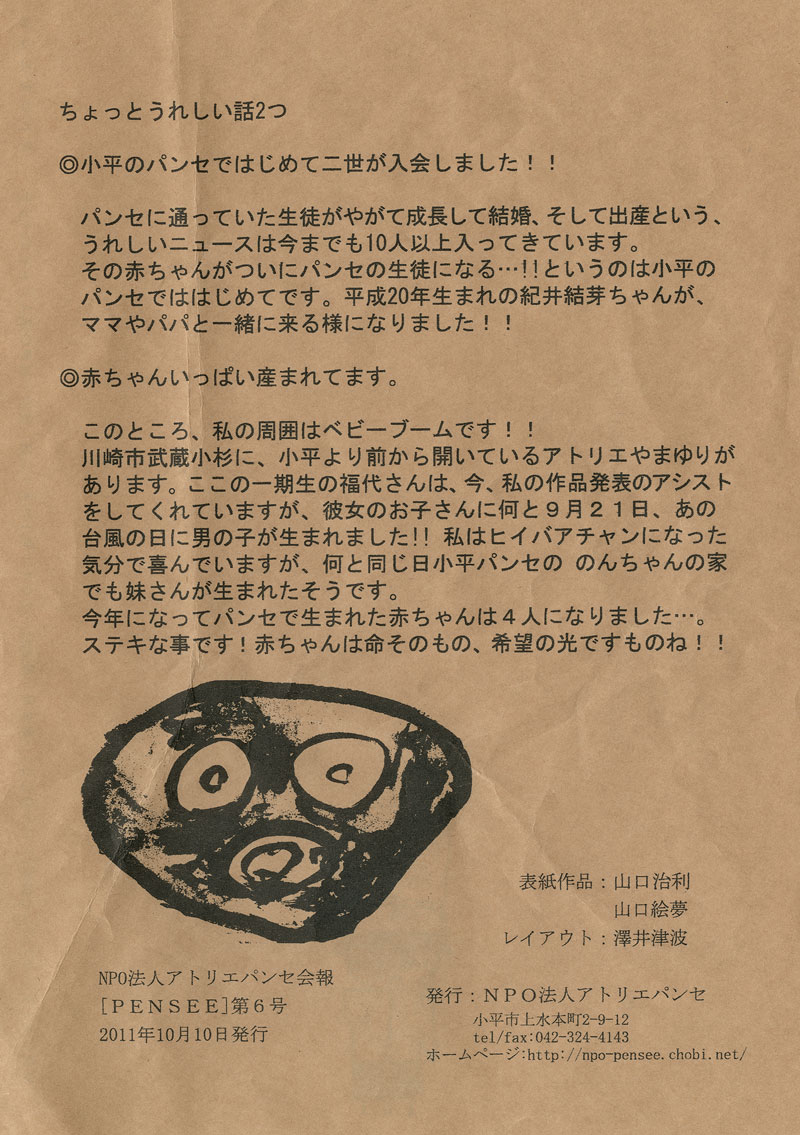 ちょっとうれしい話2つ
◎小平のパンセではじめて二世が入会しました！！
パンセに通っていた生徒がやがて成長して結婚、そして出産という、
うれしいニュースは今までも10人以上入ってきています。
その赤ちゃんがついにパンセの生徒になる…!!というのは小平の
パンセでははじめてです。平成20年生まれの紀井結芽ちゃんが、
ママやパパと一緒に来る様になりました！！
◎赤ちゃんいっぱい産まれてます。
このところ、私の周囲はベビーブームです！！
川崎市武蔵小杉に、小平より前から開いているアトリエやまゆりが
あります。ここの一期生の福代さんは、今、私の作品発表のアシスト
をしてくれていますが、彼女のお子さんに何と９月２１日、あの
台風の日に男の子が生まれました!! 私はヒイバアチャンになった
気分で喜んでいますが、何と同じ日小平パンセの のんちゃんの家
でも妹さんが生まれたそうです。
今年になってパンセで生まれた赤ちゃんは４人になりました…。
ステキな事です！赤ちゃんは命そのもの、希望の光ですものね！！
表紙作品：山口治利
山口絵夢
レイアウト：澤井津波
NPO法人アトリエパンセ会報
[ＰＥＮＳＥＥ]第６号
2011年10月10日発行
発行：ＮＰＯ法人アトリエパンセ
小平市上水本町2-9-12
tel/fax:042-324-4143
ホームページ:http://npo-pensee.chobi.net/